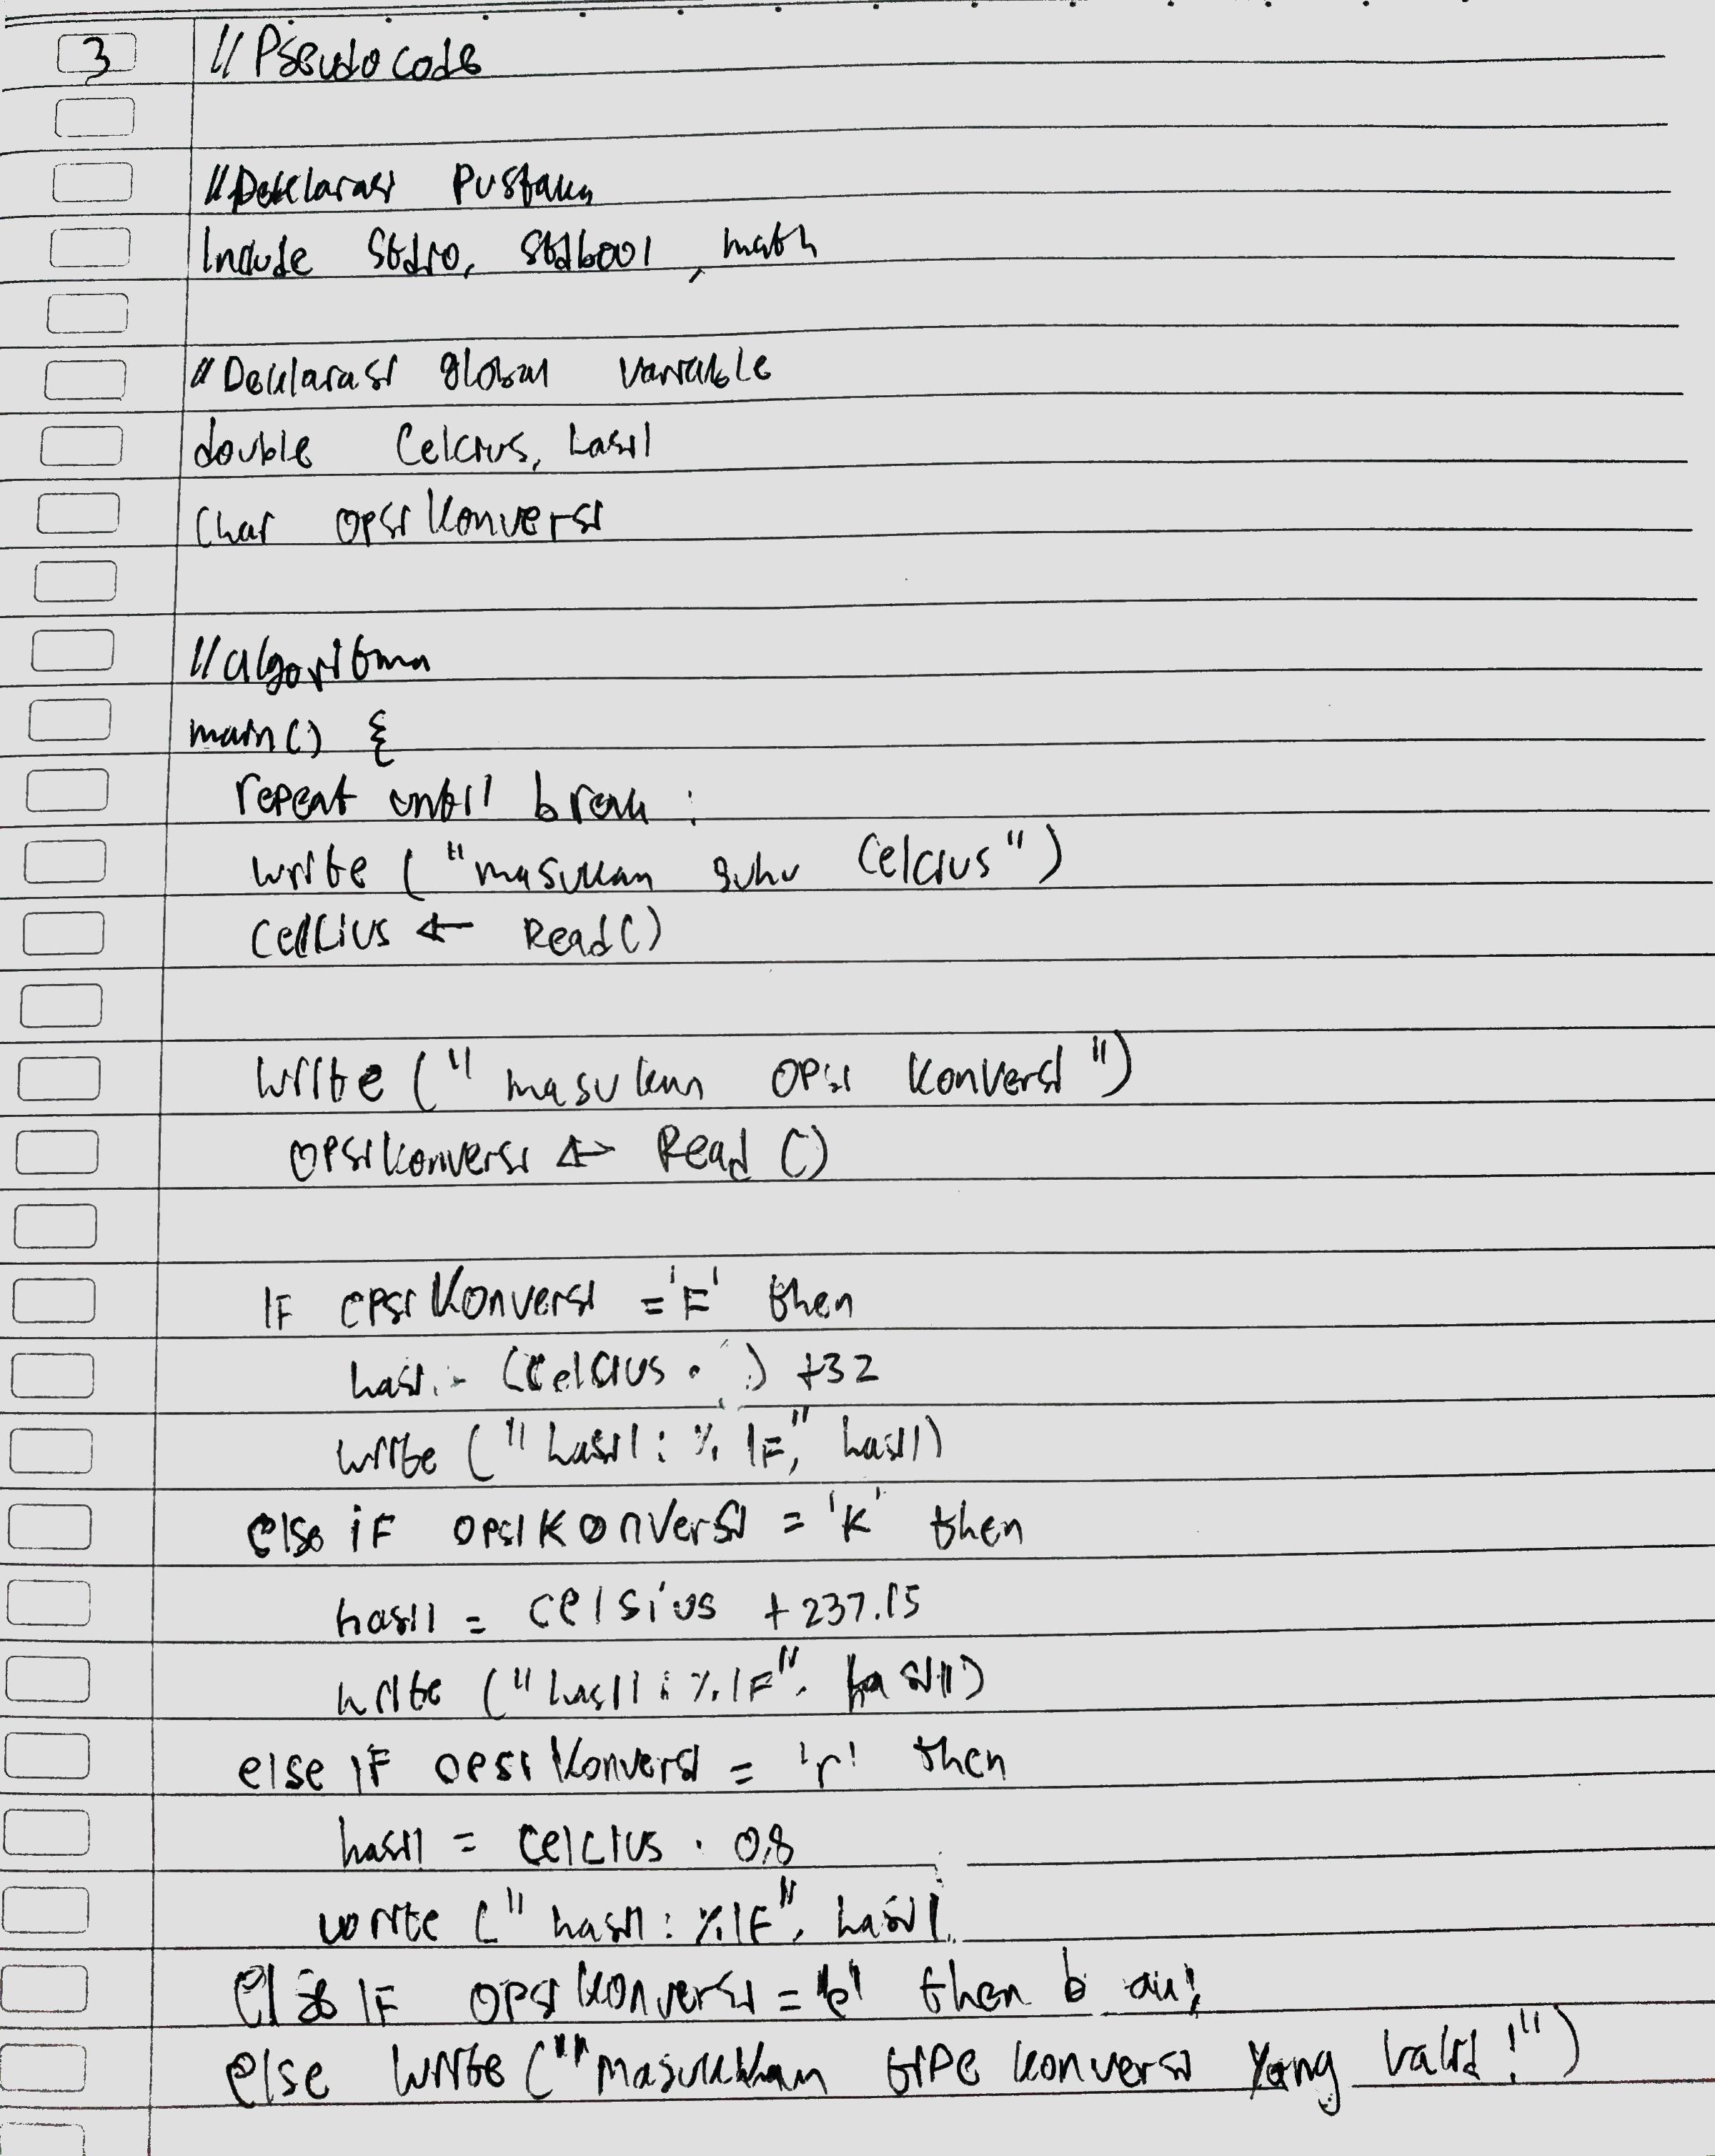 3 // Pseudocode
// Deklarasi Pustaka
Include Stdio, Stdbool, math
// Deklarasi global variable
double Celcius, hasil
Char opsiKonversi
// algoritma
main() {
repeat until break :
write ("masukan suhu Celcius")
Celcius ← Read()
write ("masukan opsi konversi")
opsikonversi ← Read ()
IF opsiKonversi = 'F' then
hasil = (Celcius • ) +32
write ("hasil : % lF", hasil)
else iF opsiKonversi = 'K' then
hasil = celsius + 237.15
write ("hasil : %lF", hasil)
else iF opsiKonversi = 'r' then
hasil = Celcius . 0,8
write (" hasil : %lF", hasil
Else IF opsikonversi = 'e' then
else write ("Masukkkan tipe konversi yang valid !")